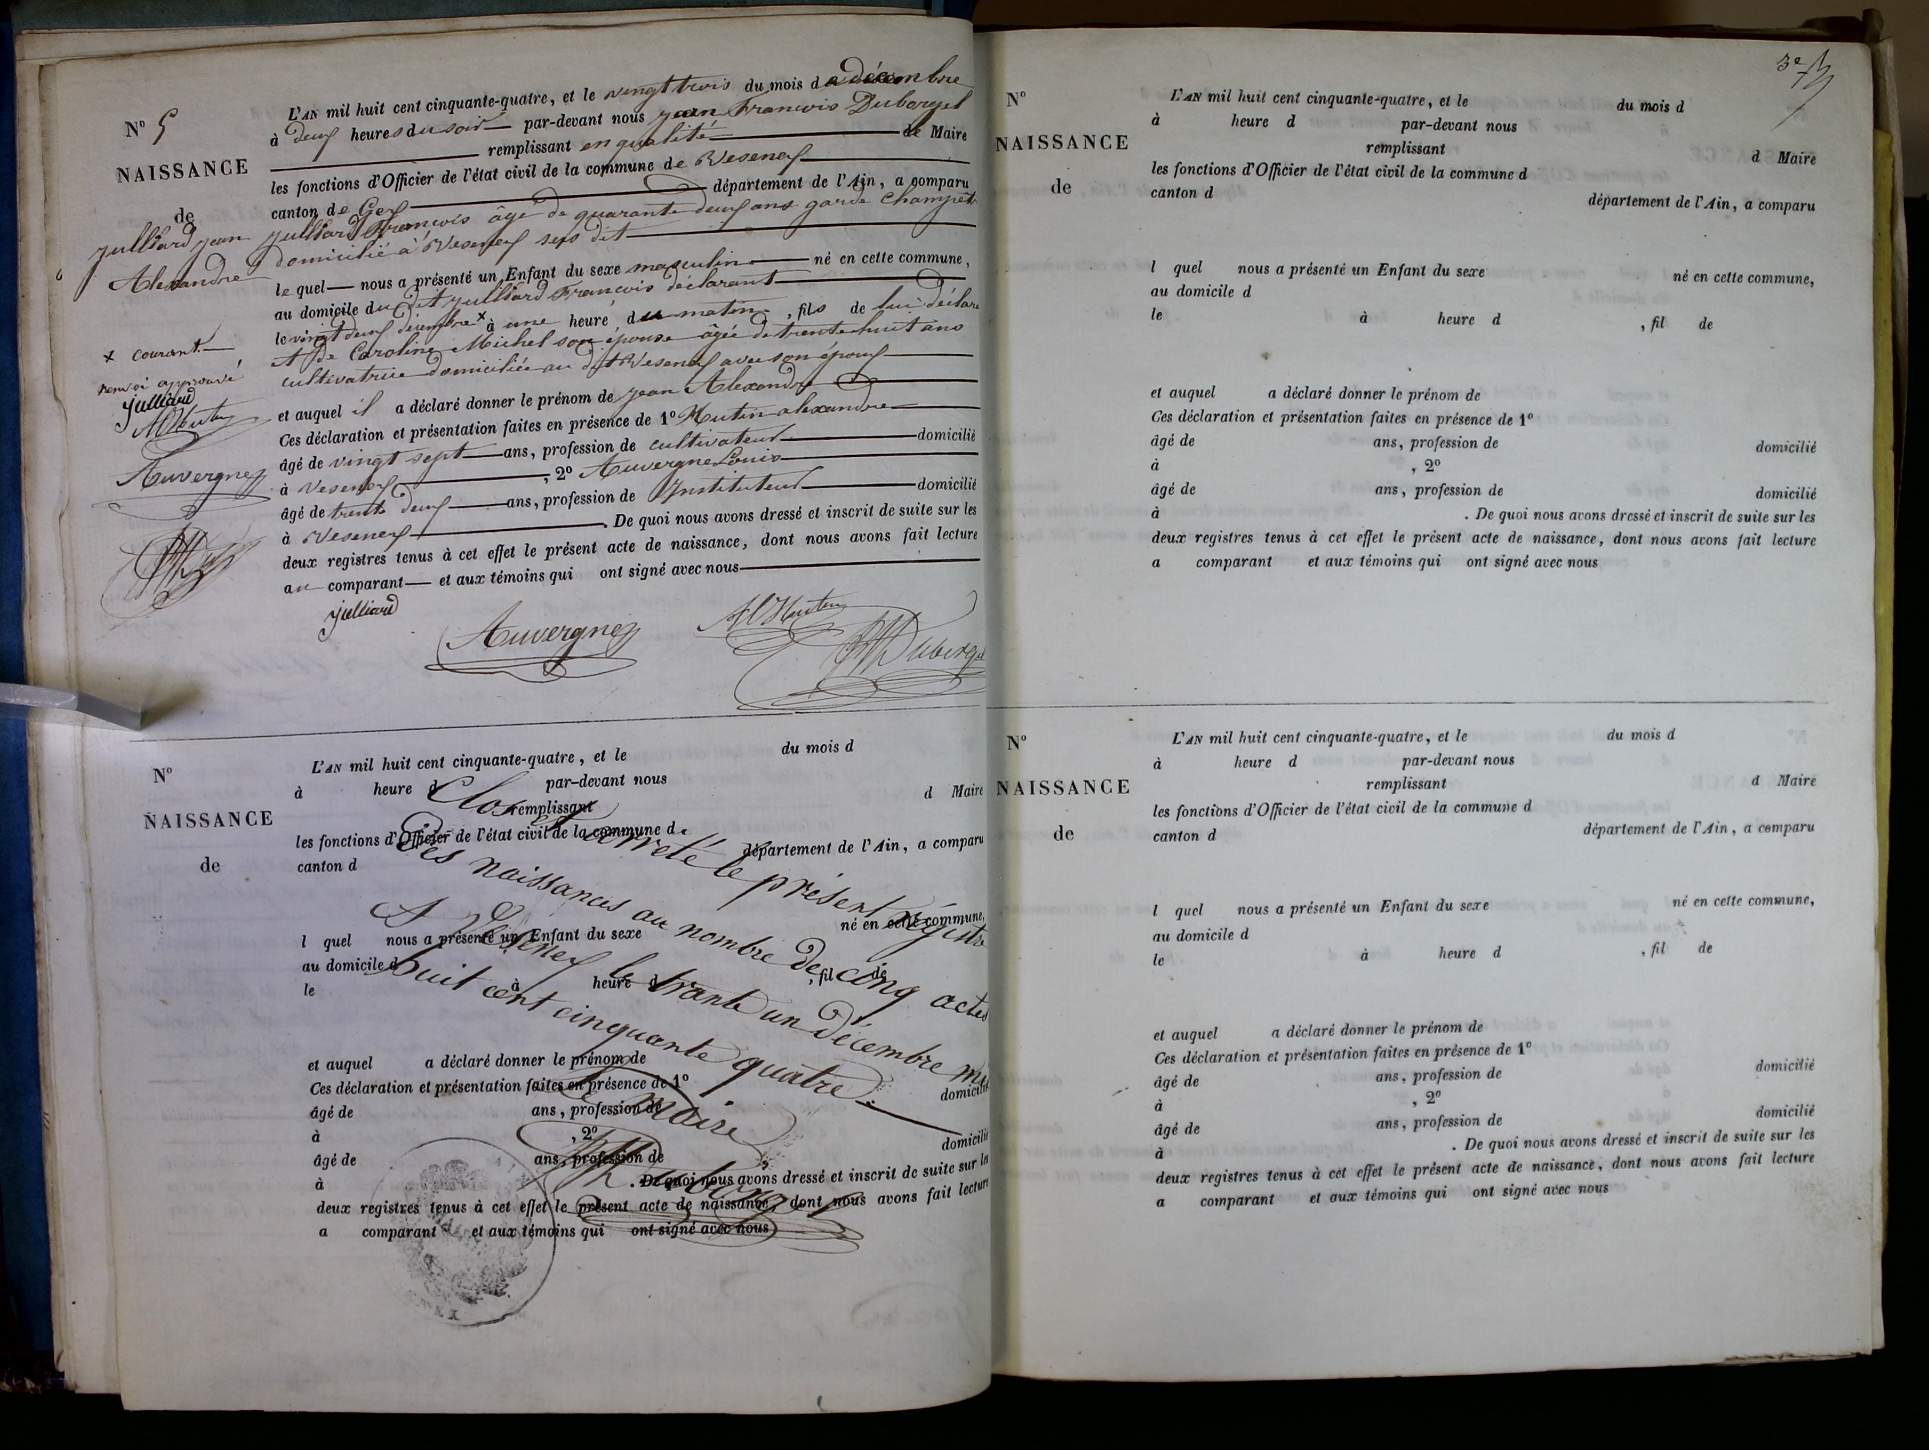 N° 5
NAISSANCE
de
julliard jean
Alexandre
x courant
renvoi approuvé
julliard
Auvergne
L'AN mil huit cent cinquante-quatre, et le vingt trois du mois de décembre
à deux heures du soir par-devant nous jean François Dubargel
remplissant en qualité de Maire
les fonctions d'Officier de l'état civil de la commune de Vesenex
canton de Gex département de l'Ain, a comparu
julliard François âgé de quarante deux ans garde champêt
domicilié à Vesenex sus dit
lequel nous a présenté un Enfant du sexe masculin né en cette commune,
au domicile du dit julliard François déclarant
le vingt deux décembre x à une heure du matin, fils de lui déclara
et de Caroline Michel son épouse âgée de trente huit ans
cultivatrice domiciliée au dit Vesenex avec son époux
et auquel il a déclaré donner le prénom de jean Alexandre
Ces déclaration et présentation faites en présence de 1° Hutin alexandre
âgé de vingt sept ans, profession de cultivateur domicilié
à Vesenex, 2° Auvergne Louis
âgé de trente deux ans, profession de Instituteur domicilié
à Vesenex. De quoi nous avons dressé et inscrit de suite sur les
deux registres tenus à cet effet le présent acte de naissance, dont nous avons fait lecture
au comparant et aux témoins qui ont signé avec nous
julliard
Auvergne
Dubargel
N°
NAISSANCE
de
L'AN mil huit cent cinquante-quatre, et le du mois d
à heure d par-devant nous
remplissant d Maire
les fonctions d'Officier de l'état civil de la commune d
canton d département de l'Ain, a comparu
l quel nous a présenté un Enfant du sexe né en cette commune,
au domicile d
le à heure d , fil de
et auquel a déclaré donner le prénom de
Ces déclaration et présentation faites en présence de 1°
âgé de ans, profession de domicilié
à , 2°
âgé de ans, profession de domicilié
à . De quoi nous avons dressé et inscrit de suite sur les
deux registres tenus à cet effet le présent acte de naissance, dont nous avons fait lecture
a comparant et aux témoins qui ont signé avec nous
Clos et arreté le présent registre
Des naissances au nombre de cinq actes
A Vesenex le trante un décembre mil
huit cent cinquante quatre.
Le Maire
3e
N°
NAISSANCE
de
L'AN mil huit cent cinquante-quatre, et le du mois d
à heure d par-devant nous
remplissant d Maire
les fonctions d'Officier de l'état civil de la commune d
canton d département de l'Ain, a comparu
l quel nous a présenté un Enfant du sexe né en cette commune,
au domicile d
le à heure d , fil de
et auquel a déclaré donner le prénom de
Ces déclaration et présentation faites en présence de 1°
âgé de ans, profession de domicilié
à , 2°
âgé de ans, profession de domicilié
à . De quoi nous avons dressé et inscrit de suite sur les
deux registres tenus à cet effet le présent acte de naissance, dont nous avons fait lecture
a comparant et aux témoins qui ont signé avec nous
N°
NAISSANCE
de
L'AN mil huit cent cinquante-quatre, et le du mois d
à heure d par-devant nous
remplissant d Maire
les fonctions d'Officier de l'état civil de la commune d
canton d département de l'Ain, a comparu
l quel nous a présenté un Enfant du sexe né en cette commune,
au domicile d
le à heure d , fil de
et auquel a déclaré donner le prénom de
Ces déclaration et présentation faites en présence de 1°
âgé de ans, profession de domicilié
à , 2°
âgé de ans, profession de domicilié
à . De quoi nous avons dressé et inscrit de suite sur les
deux registres tenus à cet effet le présent acte de naissance, dont nous avons fait lecture
a comparant et aux témoins qui ont signé avec nous